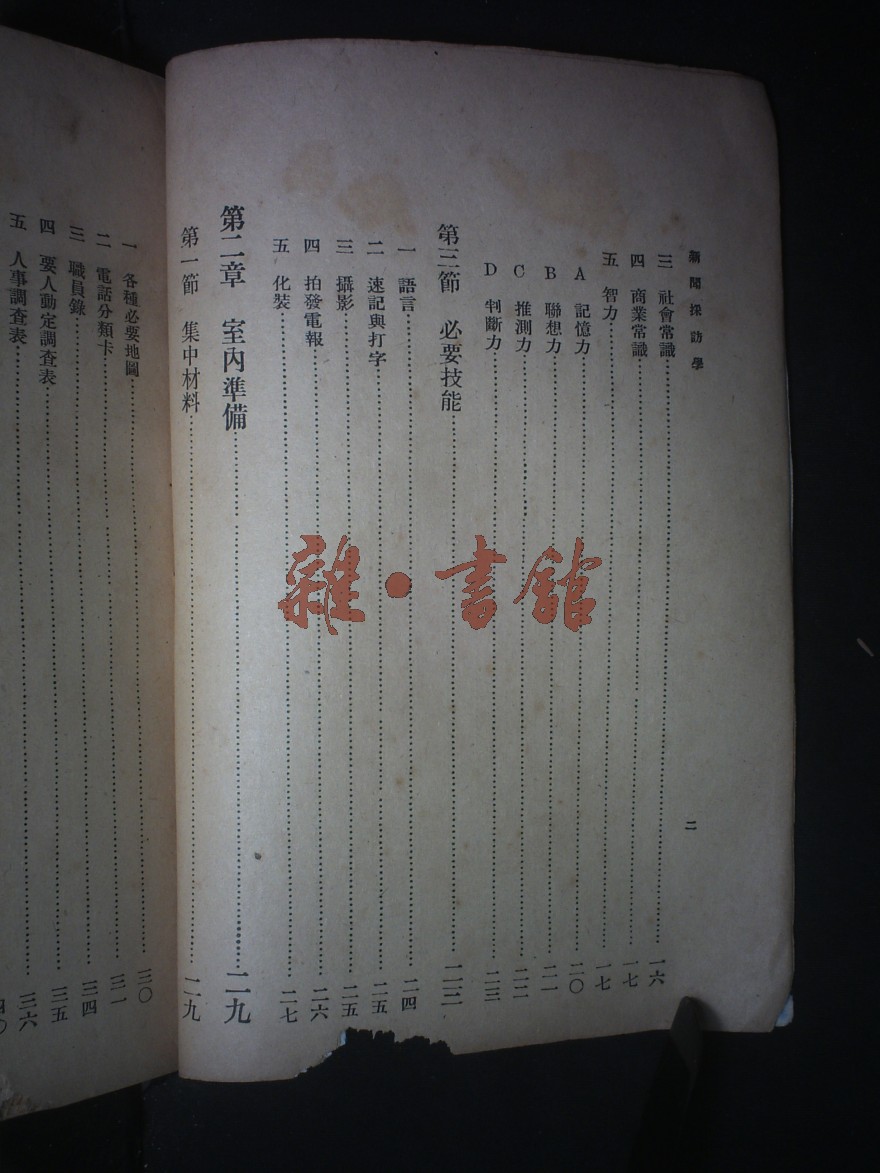 新聞採訪學
二
三 社會常識……一六
四 商業常識……一七
五 智力……一七
A 記憶力……二〇
B 聯想力……二一
C 推測力……二二
D 判斷力……二三
第三節 必要技能……二三
一 語言……二四
二 速記與打字……二五
三 攝影……二五
四 拍發電報……二六
五 化裝……二七
第二章 室內準備……二九
第一節 集中材料……二九
一 各種必要地圖……三〇
二 電話分類卡……三一
三 職員錄……三四
四 要人動定調查表……三五
五 人事調查表……三六
四〇
雜·書館